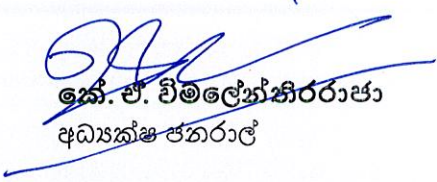 කේ. ඒ. විමලේන්තිරරාජා
අධ්‍යක්ෂ ජනරාල්